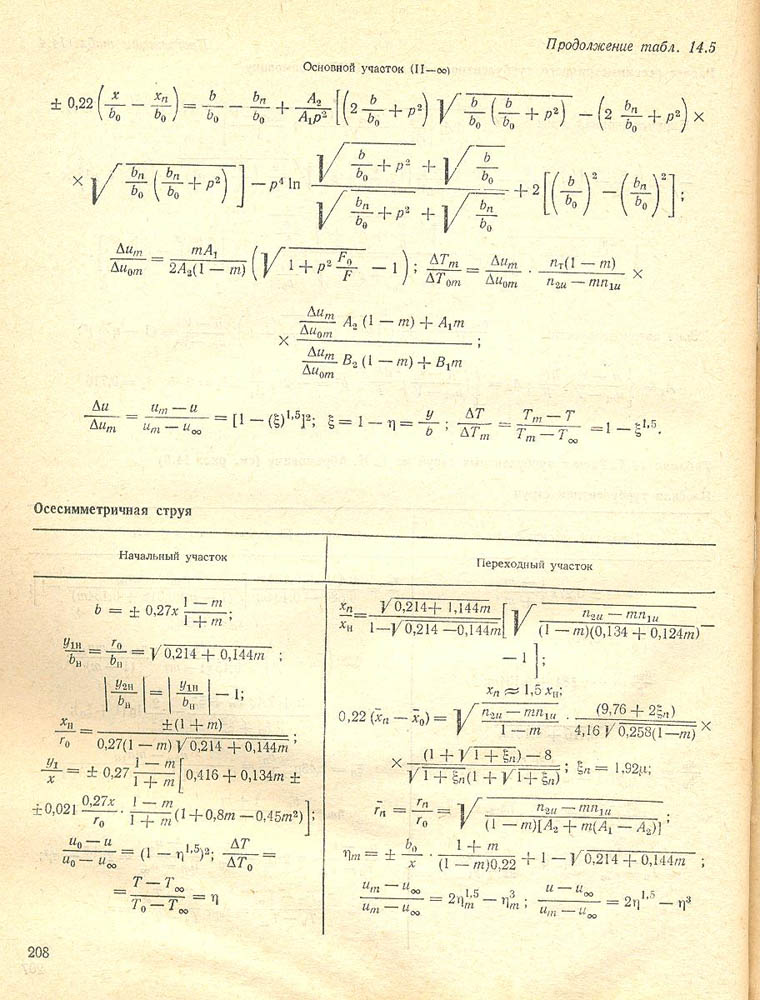 Продолжение табл. 14.5
Основной участок (II—∞)
± 0,22 (x/b₀ − xₙ/b₀) = b/b₀ − bₙ/b₀ + A₂/(A₁p²) [(2 b/b₀ + p²) √(b/b₀ (b/b₀ + p²)) − (2 bₙ/b₀ + p²) ×
× √(bₙ/b₀ (bₙ/b₀ + p²))] − p⁴ ln (√(b/b₀ + p²) + √(b/b₀))/(√(bₙ/b₀ + p²) + √(bₙ/b₀)) + 2[(b/b₀)² − (bₙ/b₀)²];
Δuₘ/Δu₀ₘ = mA₁/(2A₂(1 — m)) (√(1 + p² F₀/F) − 1); ΔTₘ/ΔT₀ₘ = Δuₘ/Δu₀ₘ · nₜ(1 — m)/(n₂ᵤ — mn₁ᵤ) ×
× (Δuₘ/Δu₀ₘ A₂ (1 — m) + A₁m)/(Δuₘ/Δu₀ₘ B₂ (1 — m) + B₁m);
Δu/Δuₘ = (uₘ — u)/(uₘ — u∞) = [1 — (ξ)^1,5]²; ξ = 1 — η = y/b; ΔT/ΔTₘ = (Tₘ — T)/(Tₘ — T∞) = 1 — ξ^1,5.
Осесимметричная струя
Начальный участок
b = ± 0,27x (1 — m)/(1 + m);
y₁ₙ/bₙ = r₀/bₙ = √(0,214 + 0,144m);
|y₂ₙ/bₙ| = |y₁ₙ/bₙ| — 1;
xₙ/r₀ = ±(1 + m)/(0,27(1 — m) √(0,214 + 0,144m));
y₁/x = ± 0,27 (1 — m)/(1 + m) [0,416 + 0,134m ±
±0,021 0,27x/r₀ · (1 — m)/(1 + m) (1 + 0,8m — 0,45m²)];
(u₀ — u)/(u₀ — u∞) = (1 — η^1,5)²; ΔT/ΔT₀ =
= (T — T∞)/(T₀ — T∞) = η
Переходный участок
xₙ/xн = √(0,214 + 1,144m)/(1—√(0,214 —0,144m)) [√((n₂ᵤ — mn₁ᵤ)/((1 — m)(0,134 + 0,124m))) —
— 1];
xₙ ≈ 1,5 xн;
0,22 (x̄ₙ — x̄₀) = √((n₂ᵤ — mn₁ᵤ)/(1 — m)) · (9,76 + 2ξₙ)/(4,16 √(0,258(1—m))) ×
× ((1 + √(1 + ξₙ) — 8)/(√(1 + ξₙ)(1 + √(1 + ξₙ))); ξₙ = 1,92μ;
r̄ₙ = rₙ/r₀ = √((n₂ᵤ — mn₁ᵤ)/((1 — m)[A₂ + m(A₁ — A₂)]));
ηₘ = ± b₀/x · (1 + m)/((1 — m)0,22) + 1 — √(0,214 + 0,144m);
(uₘ — u∞)/(uₘ — u∞) = 2ηₘ^1,5 — ηₘ³; (u — u∞)/(uₘ — u∞) = 2η^1,5 — η³
208